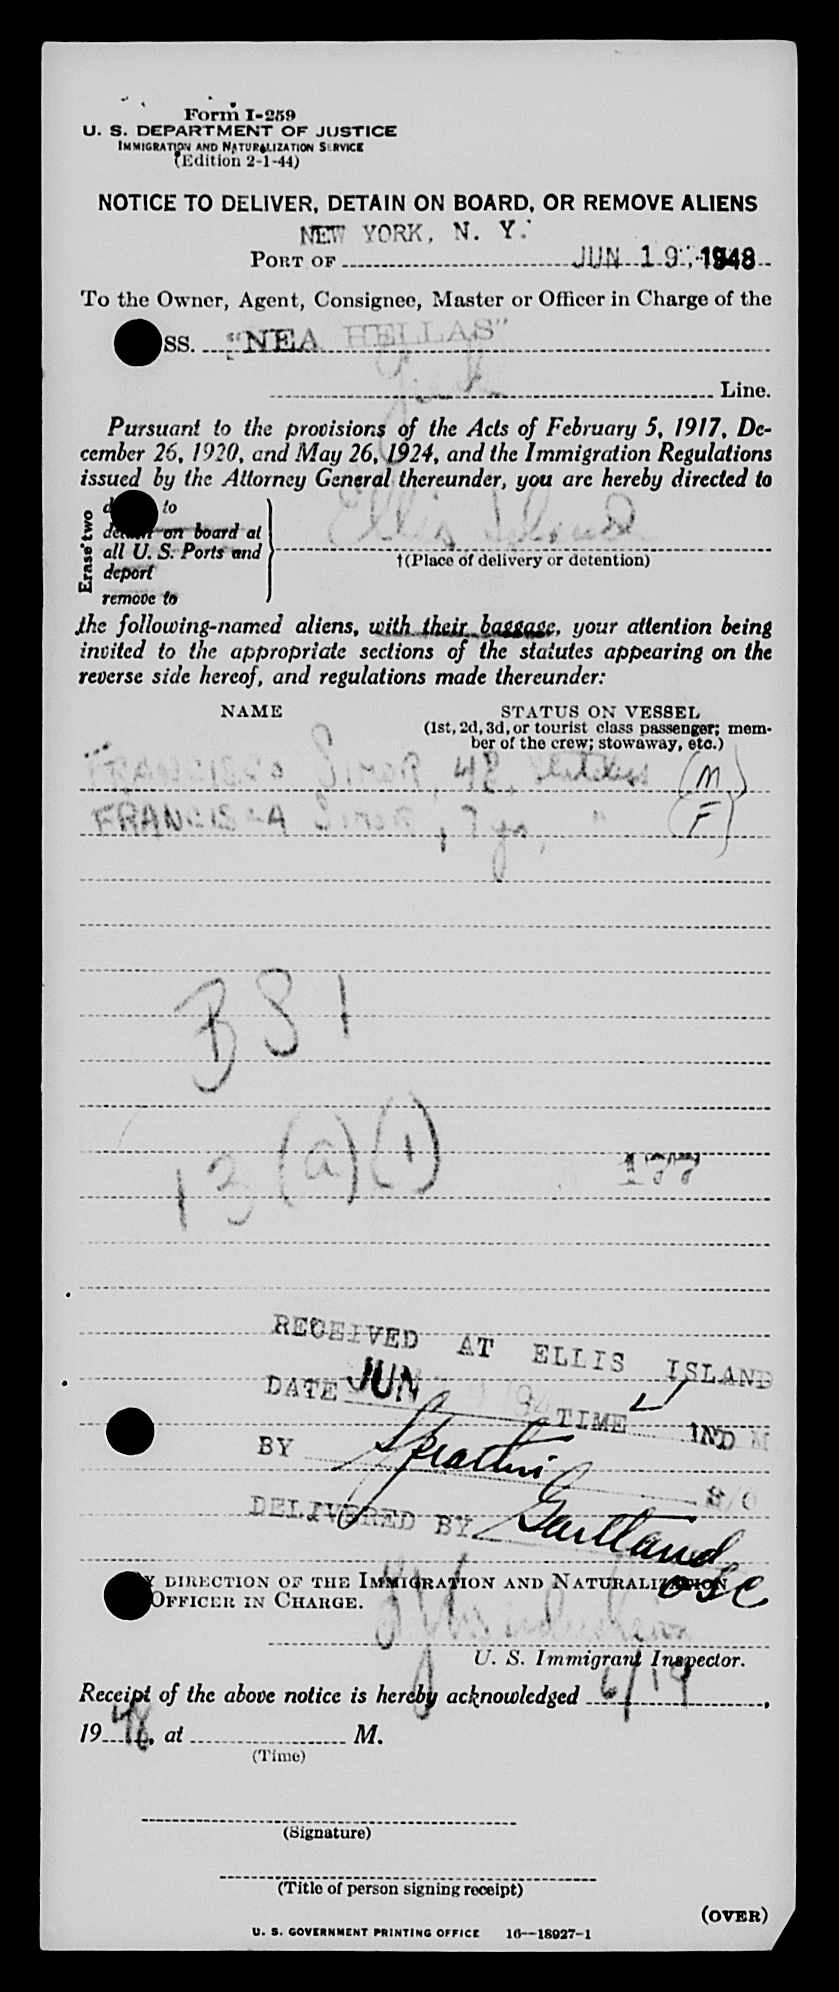 Form I-259
U. S. DEPARTMENT OF JUSTICE
IMMIGRATION AND NATURALIZATION SERVICE
(Edition 2-1-44)
NOTICE TO DELIVER, DETAIN ON BOARD, OR REMOVE ALIENS
NEW YORK, N. Y.
PORT OF JUN 19, 1948
To the Owner, Agent, Consignee, Master or Officer in Charge of the
SS. "NEA HELLAS"
Greek Line.
Pursuant to the provisions of the Acts of February 5, 1917, De-
cember 26, 1920, and May 26, 1924, and the Immigration Regulations
issued by the Attorney General thereunder, you are hereby directed to
Erase two
to
detain on board at
all U. S. Ports and
deport
remove to
Ellis Island
†(Place of delivery or detention)
the following-named aliens, with their baggage, your attention being
invited to the appropriate sections of the statutes appearing on the
reverse side hereof, and regulations made thereunder:
NAME STATUS ON VESSEL
(1st, 2d, 3d, or tourist class passenger; mem-
ber of the crew; stowaway, etc.)
48, (M)
FRANCISCA , 7 yrs, " (F)
BSI
13 (a) (1)
RECEIVED AT ELLIS ISLAND
DATE JUN TIME IND M
BY
DELIVERED BY Gartland
BY DIRECTION OF THE IMMIGRATION AND NATURALIZATION
OFFICER IN CHARGE.
U. S. Immigrant Inspector.
Receipt of the above notice is hereby acknowledged 6/19,
1948, at M.
(Time)
(Signature)
(Title of person signing receipt)
(OVER)
U. S. GOVERNMENT PRINTING OFFICE 16—18927-1